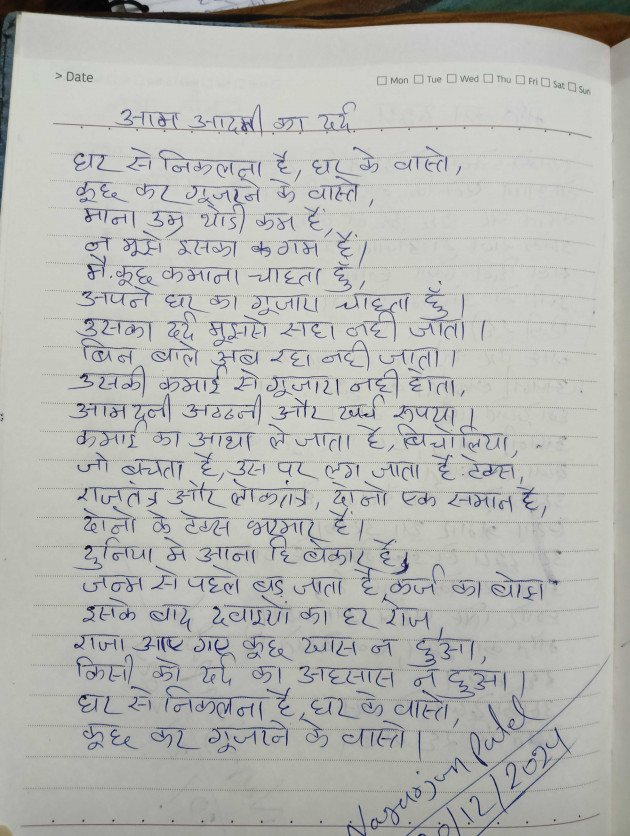 > Date
Mon Tue Wed Thu Fri Sat Sun
आम आदमी का दर्द
घर से निकलना है, घर के वास्ते,
कूछ कर गूजरने के वास्ते,
माना उम्र थोडी कम है,
न मूझे इसका गम है।
मै कूछ कमाना चाहता हूँ,
अपने घर का गूजारा चाहता हूँ।
उसका दर्द मूझसे सहा नही जाता।
बिन बोले अब रहा नही जाता।
उसकी कमाई से गूजारा नही होता,
आमदनी अठठनी और खर्च रूपया।
कमाई का आधा ले जाता है, बिचोलिया,
जो बचता है, उस पर लग जाता है टेक्स,
राजतंत्र और लोकतंत्र, दोनो एक समान है,
दोनो के टेक्स भरमार है।
दुनिया मे आना हि बेकार है,
जन्म से पहले बड़ जाता है कर्ज का बोझ
इसके बाद दवाइयों का हर रोज,
राजा आए गए कूछ खास न हुआ,
किसी को दर्द का अहसास न हुआ।
घर से निकलना है, घर के वास्ते,
कूछ कर गूजरने के वास्ते।
Nagarjun Patel
/12/2024